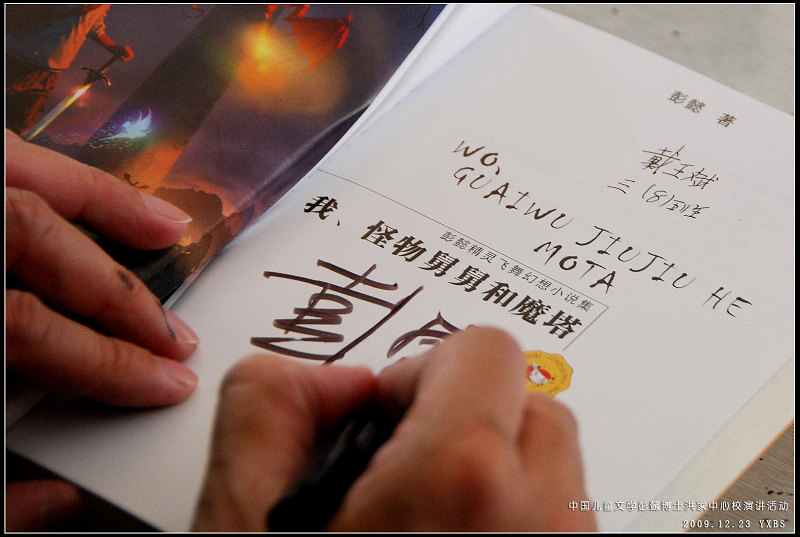 彭懿 著
戴王斌
三（8）班
WO、
GUAIWU JIUJIU HE
MOTA
彭懿精灵飞舞幻想小说集
我、怪物舅舅和魔塔
彭
中国儿童文学彭懿博士洪家中心校演讲活动
2009.12.23 YXBS